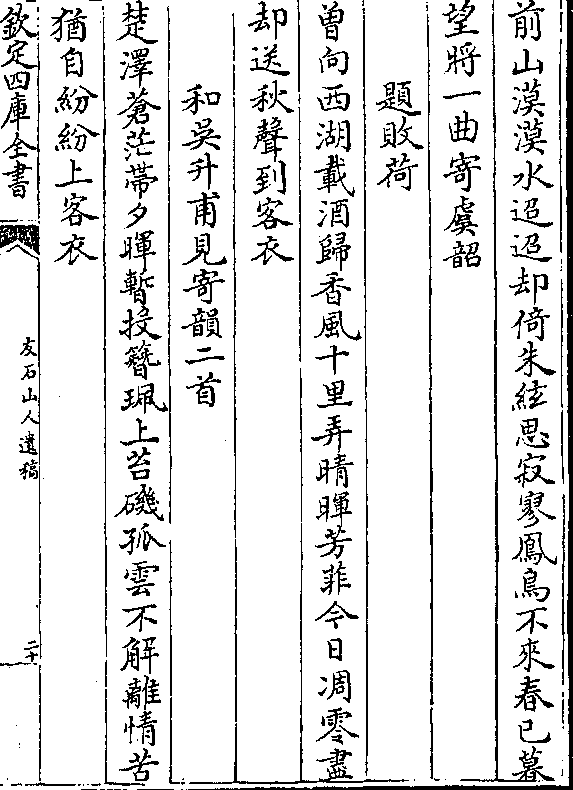 前山漠漠水迢迢却倚朱絃思寂寥鳳鳥不來春已暮
望將一曲寄虞韶
題敗荷
曽向西湖載酒歸香風十里弄晴暉芳菲今日凋零盡
却送秋聲到客衣
和吳升甫見寄韻二首
楚澤蒼茫帶夕暉暫投簪珮上苔磯孤雲不解離情苦
猶自紛紛上客衣
欽定四庫全書
友石山人遺稿
二十